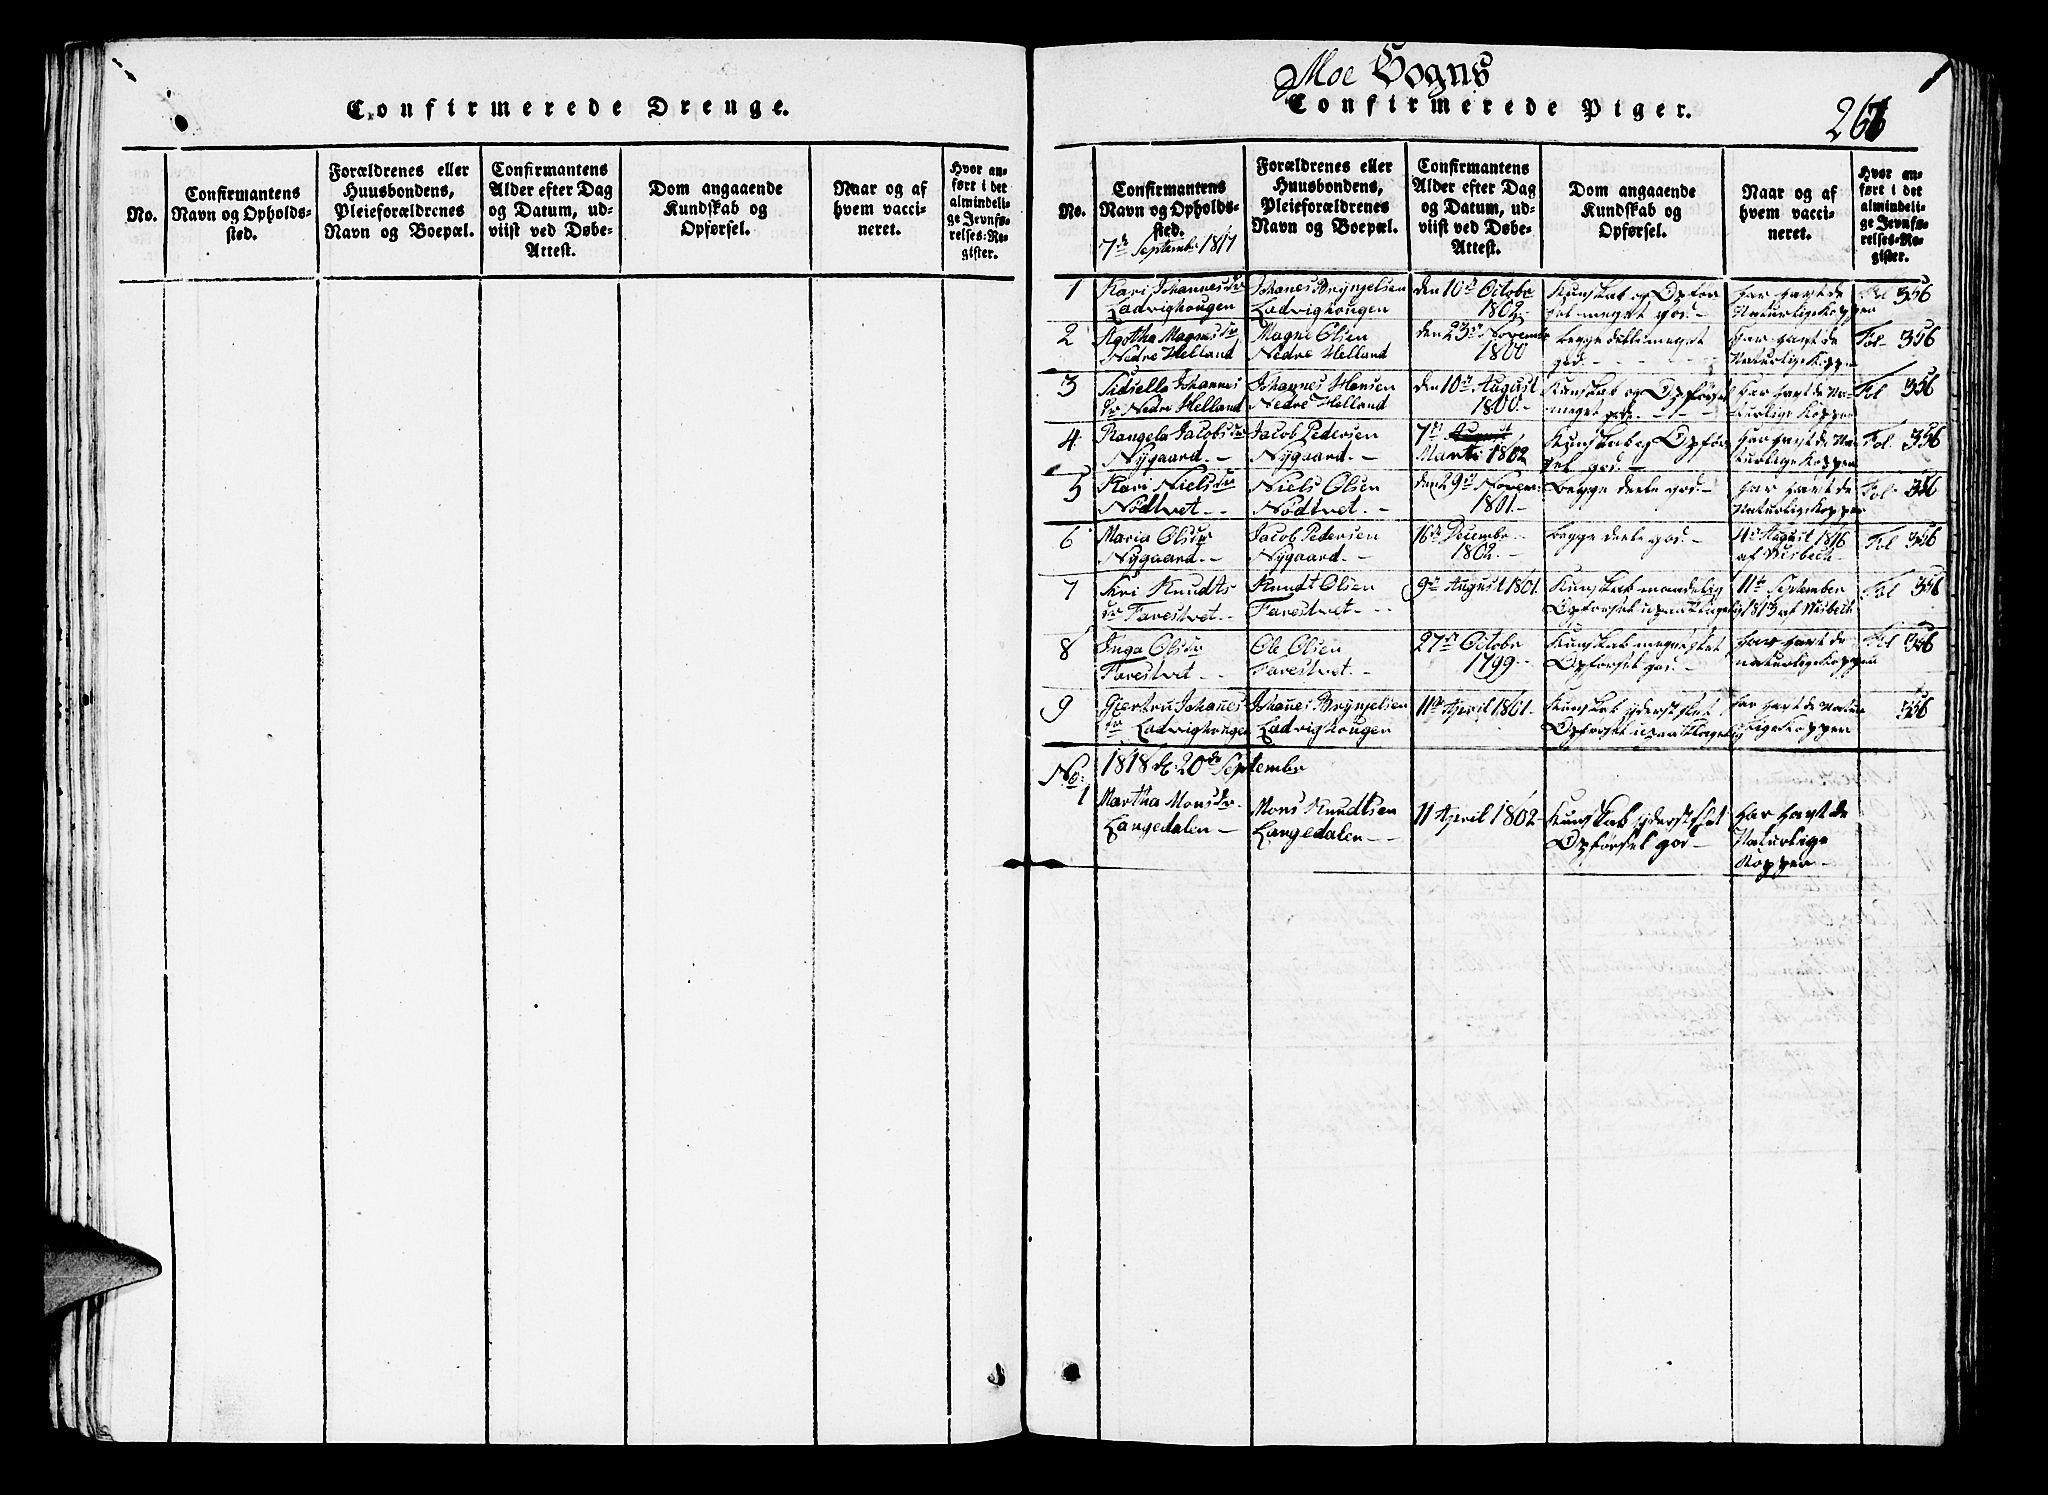 Confirmerede Drenge.
No.
Confirmantens
Navn og Opholds-
sted.
Forældrenes eller
Huusbondens,
Pleieforældrenes
Navn og Boepæl.
Confirmantens
Alder efter Dag
og Datum, ud-
viist ved Døbe-
Attest.
Dom angaaende
Kundskab og
Opførsel.
Naar og af
hvem vacci-
neret.
Hvor an-
ført i det
almindeli-
ge Jevnfø-
relses-Re-
gister.
Moe Sogns
Confirmerede Piger.
No.
Confirmantens
Navn og Opholds-
sted.
7de September 1817
Forældrenes eller
Huusbondens,
Pleieforældrenes
Navn og Boepæl.
Confirmantens
Alder efter Dag
og Datum, ud-
viist ved Døbe-
Attest.
Dom angaaende
Kundskab og
Opførsel.
Naar og af
hvem vacci-
neret.
Hvor an-
ført i det
almindeli-
ge Jevnfø-
relses-Re-
gister.
1
Kari Johannesdr
Ladvighougen
Johanes Brynjelsen
Ladvighougen
den 10de Octobr
1802.
Kunskab og Opfør
sel meget god.-
har havt de
Naturlige Kopper
Fol 356
2
Agotha Magnesdr
Nedre Helland
Magne Olsen
Nedre Helland
den 23de Novembr
1800
begge dele meget
god - - -
har havt de
Naturlige Kopper
Fol- 356
3
Sidsella Johannes
dr Nedre Helland
Johannes Hansen
Nedre Helland
den 10de August
1800.-
Kunskab og Opførsel
meget gode - - -
har havt de Na-
turlige Kopper
Fol 356
4
Rangela Jacobsdr
Nygaard.-
Jacob Pedersen
Nygaard.-
7de August
Marti 1802
Kunskab og Opfør
sel god.-
har havt de Na
turlige Kopper
Fol. 356
5
Kari Nielsdr
Nodtvet.-
Niels Olsen
Nodtvet.-
den 29de Novem:
1801.-
begge deele god.-
har havt de
Naturlige Kopper
Fol- 356
6
Maria Olsdr
Nygaard.-
Jacob Pedersen
Nygaard.-
16de Decembr
1802.-
begge deele god.-
4de August 1816
af Nisbech.-
Fol 356
7
Kri Knudts
dr Farestvet.-
Knudt Olsen
Farestvet.-
9de August 1801.
Kunskab maadelig
Opførsel upaaklagelig
11te September
1813 af Nisbech
Fol 356
8
Inga Olsdr
Farestvet.-
Ole Olsen
Farestvet.-
27de Octobr
1799.-
Kunskab meget slet
Opførsel god.-
har havt de
naturlige Kopper
Fol 356
9
Giertru Johanes
dr Ladvighougen
Johanes Brynjelsen
Ladvighougen
11te April 1801.-
Kunskab yderst slet
Opførsel upaaklagelig
har havt de Natur
lige Kopper
356
No:
1818 d: 20de Septembr
1
Martha Monsdr.
Langedalen -
Mons Knudtsen
Langedalen -
11 April 1802-
Kunskab yderst slet
Opførsel god -
har havt de
Naturlige
Kopper -